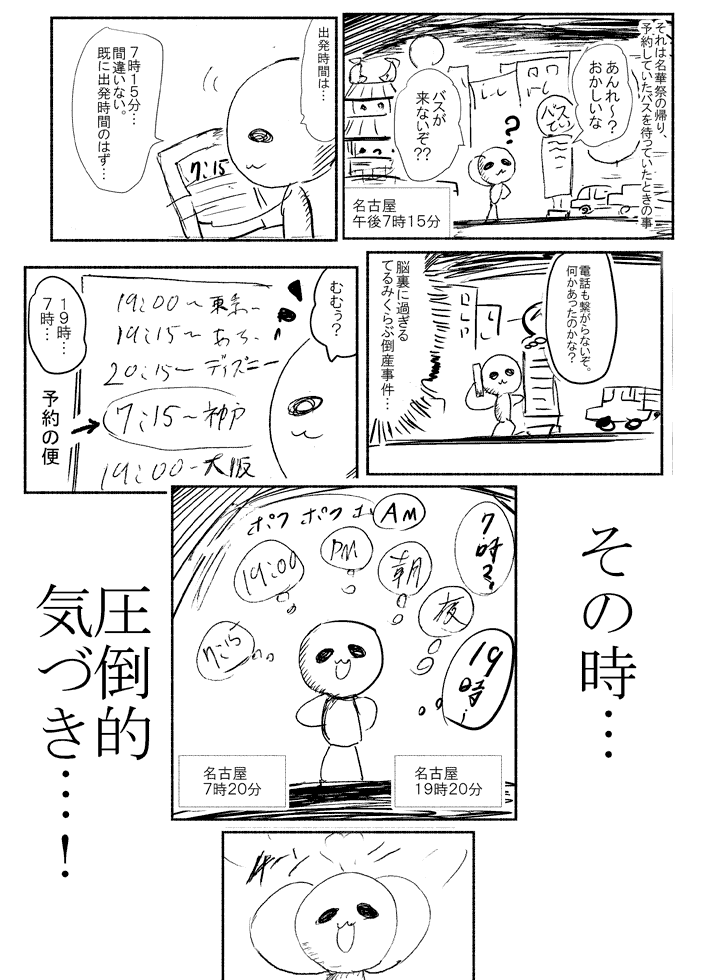 それは名華祭の帰り、
予約していたバスを待っていたときの事
あんれ〜?
おかしいな
バス
てい
バスが
来ないぞ??
?
名古屋
午後7時15分
出発時間は…
7:15
7時15分…
間違いない。
既に出発時間のはず…
電話も繋がらないぞ。
何かあったのかな?
脳裏に過ぎる
てるみくらぶ倒産事件…
むむぅ?
19:00〜東京
19:15〜
20:15〜ディズニー
7:15〜神戸
19:00-大阪
19時…
7時…
予約の便
その時…
ポワ ポワ
AM
7時?
PM
朝
19:00
夜
7:15
19時!
名古屋
7時20分
名古屋
19時20分
圧倒的
気づき…!